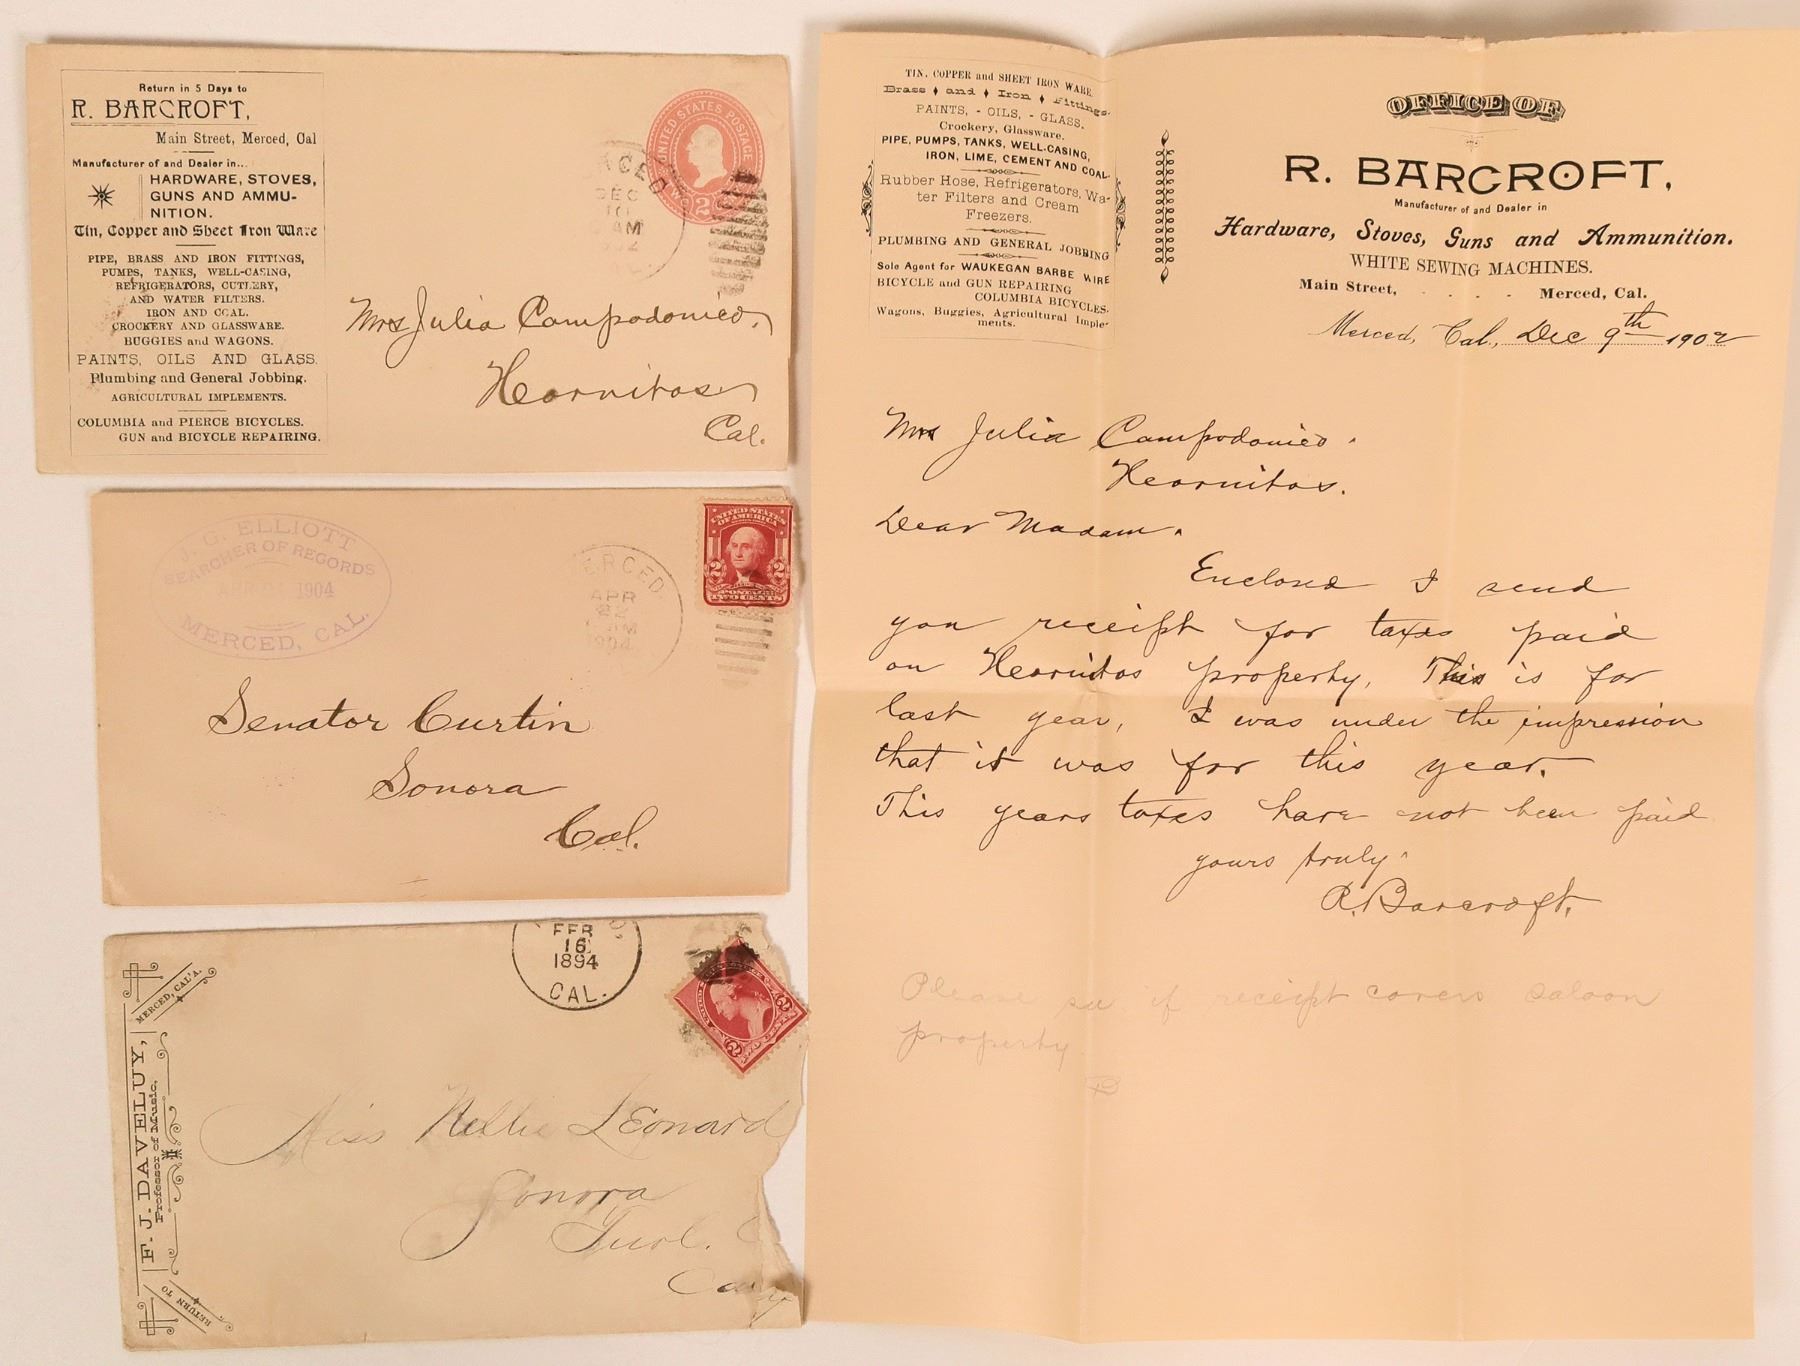 Return in 5 Days to
R. BARCROFT,
Main Street, Merced, Cal
Manufacturer of and Dealer in...
HARDWARE, STOVES,
GUNS AND AMMU-
NITION.
Tin, Copper and Sheet Iron Ware
PIPE, BRASS AND IRON FITTINGS,
PUMPS, TANKS, WELL-CASING,
REFRIGERATORS, CUTLERY,
AND WATER FILTERS.
IRON AND COAL.
CROCKERY AND GLASSWARE.
BUGGIES and WAGONS.
PAINTS, OILS AND GLASS.
Plumbing and General Jobbing.
AGRICULTURAL IMPLEMENTS.
COLUMBIA and PIERCE BICYCLES.
GUN and BICYCLE REPAIRING.
UNITED STATES POSTAGE
2
DEC
10
AM
Mrs Julia Campodonico,
Hornitos
Cal.
J. G. ELLIOTT
SEARCHER OF RECORDS
APR 1904
MERCED, CAL.
ERCED.
APR
22
1904
UNITED STATES
OF AMERICA
2 2
POSTAGE
TWO CENTS
Senator Curtin
Sonora
Cal.
MERCED, CAL'A.
F. J. DAVELUY,
Professor of Music,
RETURN TO
FEB
16
1894
CAL.
Miss Nellie Leonard
Sonora
Tuol. C
Cal
TIN, COPPER and SHEET IRON WARE.
Brass and Iron Fittings.
PAINTS, - OILS, - GLASS.
Crockery, Glassware.
PIPE, PUMPS, TANKS, WELL-CASING,
IRON, LIME, CEMENT AND COAL.
Rubber Hose, Refrigerators, Wa-
ter Filters and Cream
Freezers.
PLUMBING AND GENERAL JOBBING
Sole Agent for WAUKEGAN BARBE WIRE
BICYCLE and GUN REPAIRING
COLUMBIA BICYCLES.
Wagons, Buggies, Agricultural Imple-
ments.
OFFICE OF
R. BARCROFT,
Manufacturer of and Dealer in
Hardware, Stoves, Guns and Ammunition.
WHITE SEWING MACHINES.
Main Street, . . . . Merced, Cal.
Merced, Cal., Dec 9th 1902
Mrs Julia Campodonico.
Hornitos.
Dear Madam.
Enclosed I send
you receipt for taxes paid
on Hornitos property, This is for
last year, I was under the impression
that it was for this year.
This years taxes have not been paid
yours truly
R. Barcroft.
Please see if receipt covers saloon
property